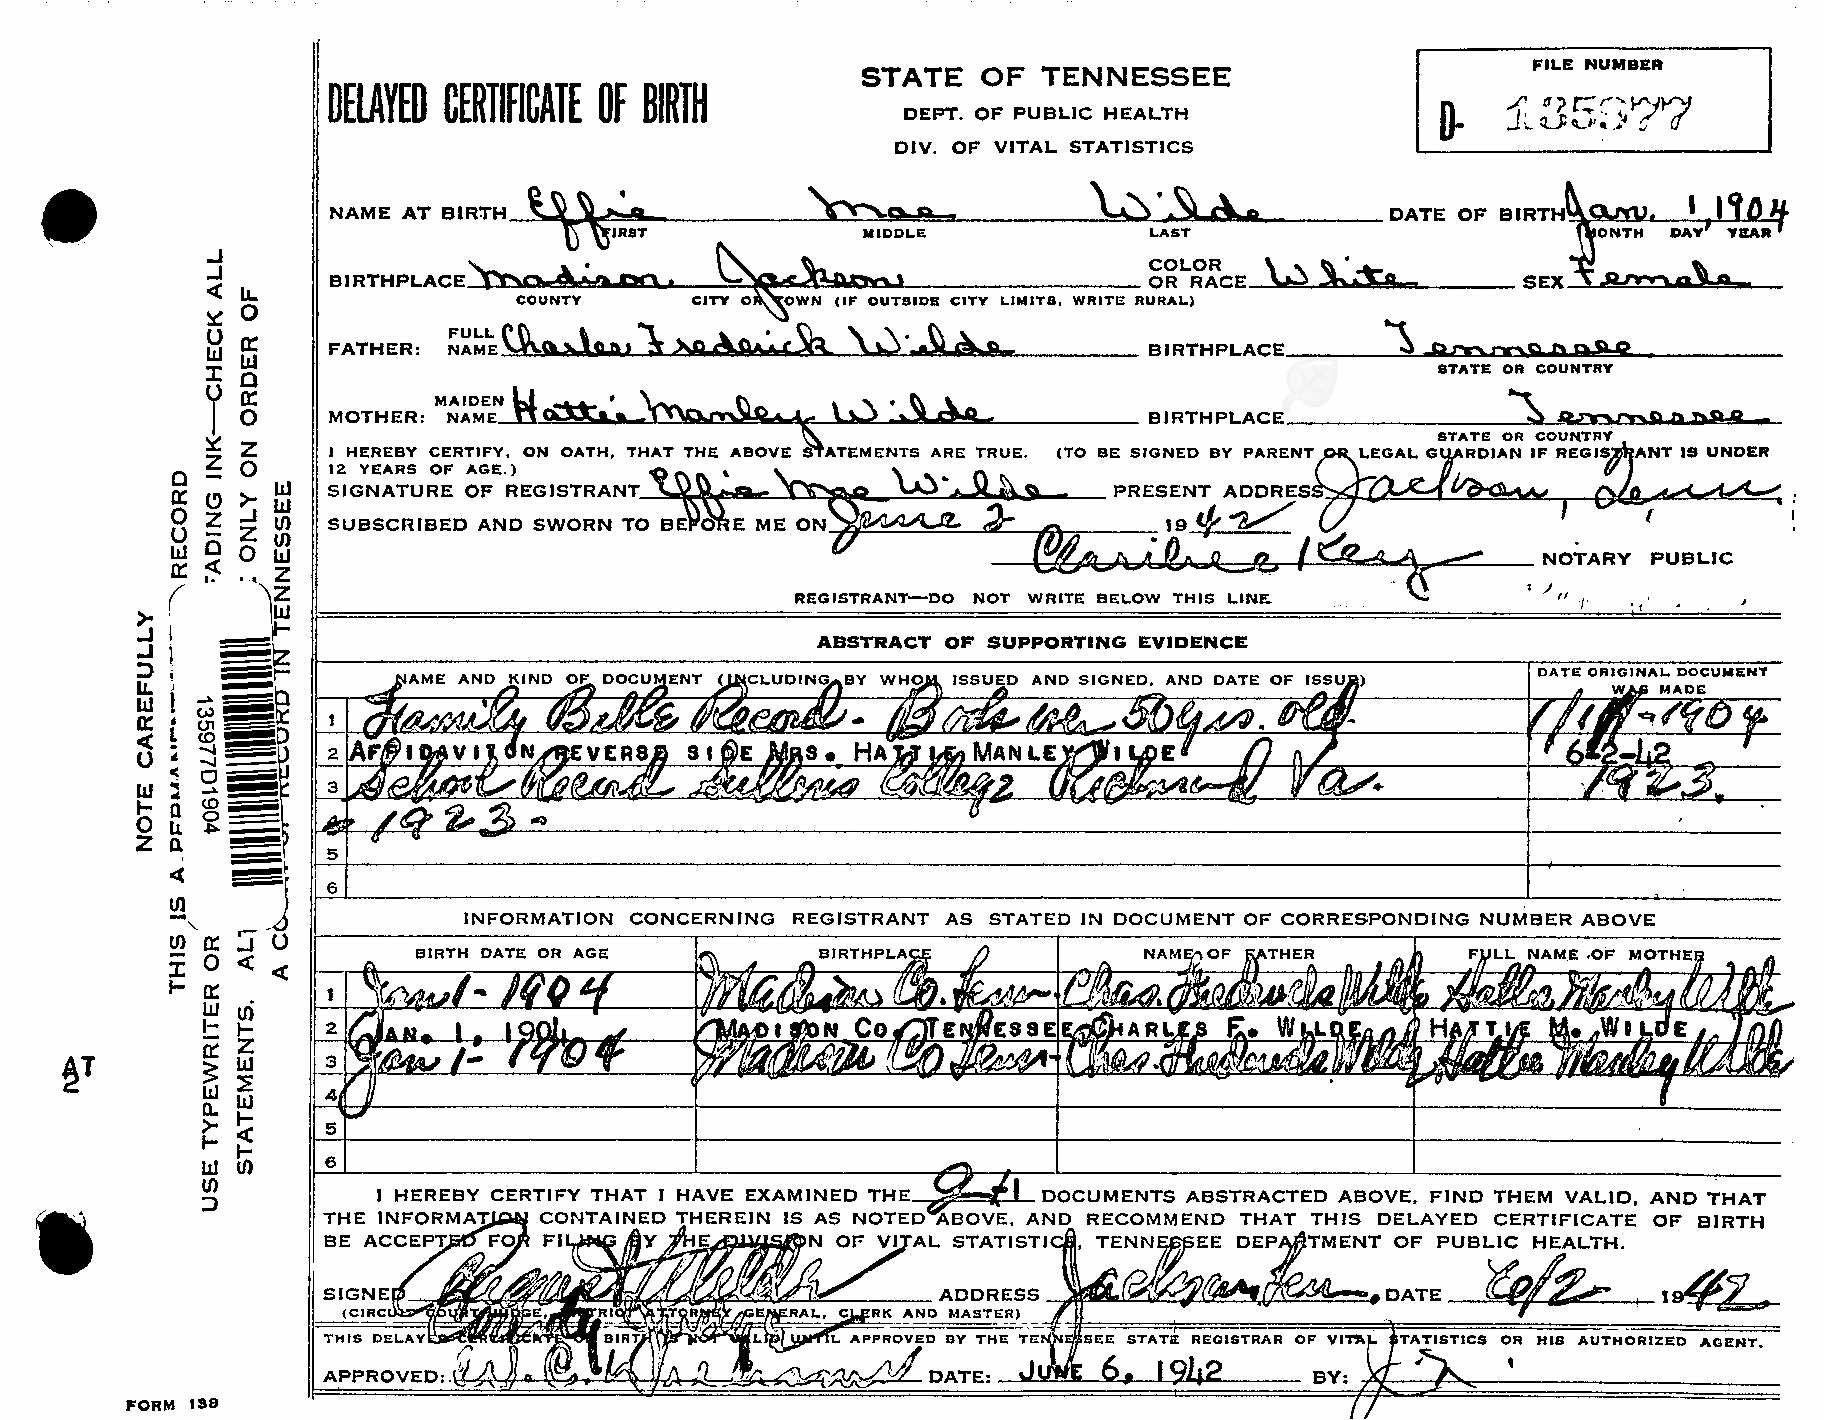 DELAYED CERTIFICATE OF BIRTH
STATE OF TENNESSEE
DEPT. OF PUBLIC HEALTH
DIV. OF VITAL STATISTICS
FILE NUMBER
D- 135977
NAME AT BIRTH Effie Mae Wilde DATE OF BIRTH Jan. 1, 1904
FIRST MIDDLE LAST MONTH DAY YEAR
BIRTHPLACE Madison Jackson COLOR OR RACE White SEX Female
COUNTY CITY OR TOWN (IF OUTSIDE CITY LIMITS, WRITE RURAL)
FATHER: FULL NAME Charles Frederick Wilde BIRTHPLACE Tennessee
STATE OR COUNTRY
MOTHER: MAIDEN NAME Hattie Manley Wilde BIRTHPLACE Tennessee
STATE OR COUNTRY
I HEREBY CERTIFY, ON OATH, THAT THE ABOVE STATEMENTS ARE TRUE. (TO BE SIGNED BY PARENT OR LEGAL GUARDIAN IF REGISTRANT IS UNDER
12 YEARS OF AGE.)
SIGNATURE OF REGISTRANT Effie Mae Wilde PRESENT ADDRESS Jackson, Tenn.
SUBSCRIBED AND SWORN TO BEFORE ME ON June 2 1942
Key NOTARY PUBLIC
REGISTRANT—DO NOT WRITE BELOW THIS LINE
ABSTRACT OF SUPPORTING EVIDENCE
NAME AND KIND OF DOCUMENT (INCLUDING BY WHOM ISSUED AND SIGNED, AND DATE OF ISSUE) DATE ORIGINAL DOCUMENT WAS MADE
1 Family Bible Record - Book over 50 yrs. old. 1904
2 AFFIDAVIT ON REVERSE SIDE MRS. HATTIE MANLEY WILDE 6-2-42
3 School Record College Richmond Va. 1923.
1923-
5
6
INFORMATION CONCERNING REGISTRANT AS STATED IN DOCUMENT OF CORRESPONDING NUMBER ABOVE
BIRTH DATE OR AGE BIRTHPLACE NAME OF FATHER FULL NAME OF MOTHER
1 Jan 1 - 1904 Madison Co. Tenn. Chas. Frederick Wilde Hattie Manley Wilde
2 JAN. 1, 1904 MADISON CO. TENNESSEE CHARLES F. WILDE HATTIE M. WILDE
3 Jan 1 - 1904 Madison Co Tenn - Chas. Frederick Wilde Hattie Manley Wilde
4
5
6
I HEREBY CERTIFY THAT I HAVE EXAMINED THE DOCUMENTS ABSTRACTED ABOVE, FIND THEM VALID, AND THAT
THE INFORMATION CONTAINED THEREIN IS AS NOTED ABOVE, AND RECOMMEND THAT THIS DELAYED CERTIFICATE OF BIRTH
BE ACCEPTED FOR FILING BY THE DIVISION OF VITAL STATISTICS, TENNESSEE DEPARTMENT OF PUBLIC HEALTH.
SIGNED ADDRESS Jackson, Tenn. DATE 6/2 1942
(CIRCUIT COURT JUDGE, DISTRICT ATTORNEY GENERAL, CLERK AND MASTER)
County Judge
THIS DELAYED CERTIFICATE OF BIRTH IS NOT VALID UNTIL APPROVED BY THE TENNESSEE STATE REGISTRAR OF VITAL STATISTICS OR HIS AUTHORIZED AGENT.
APPROVED: W. C. Williams DATE: JUNE 6, 1942 BY:
FORM 139
NOTE CAREFULLY
THIS IS A PERMANENT RECORD
USE TYPEWRITER OR FADING INK—CHECK ALL
STATEMENTS. ONLY ON ORDER OF
A RECORD IN TENNESSEE
135977D1904
AT
2